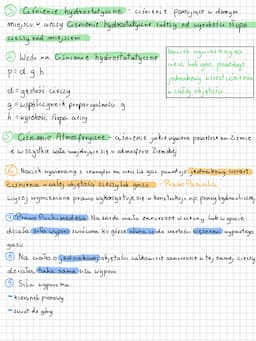 ③ Ciśnienie hydrostatyczne - ciśnienie panujące w danym
miejscu w cieczy Ciśnienie hydrostatyczne zależy od wysokości słupa
cieczy nad miejscem
④ Wzór na Ciśnienie hydrostatyczne
p = d g h
d = gęstość cieczy
g = współczynnik proporcjonalności g
h = wysokość słupa cieczy
Nacisk wywierany na
ciecz lub gaz powoduje
jednakowy wzrost ciśnienia
w całej objętości
⑤ Ciśnienie Atmosferyczne - ciśnienie jakie wywiera powietrze na Ziemię
i wszystkie ciała znajdujące się w atmosferze Ziemskiej
⑥ Nacisk wywierany z zewnątrz na ciecz lub gaz powoduje jednakowy wzrost
ciśnienia w całej objętości cieczy lub gazu - Prawo Pascala
wyżej wymienione prawo wykorzystuje się w konstrukcji np. prasy hydraulicznej
⑦ Prawo Archimedesa Na każde ciało zanurzone w cieczy lub w gazie
działa siła wyporu zwrócona ku górze i równa co do wartości ciężarowi wypartego
gazu
⑧ Na ciała o jednakowej objętości całkowicie zanurzone w tej samej cieczy
działa taka sama siła wyporu
⑨ Siła wyporu ma
- kierunek pionowy
- zwrot do góry